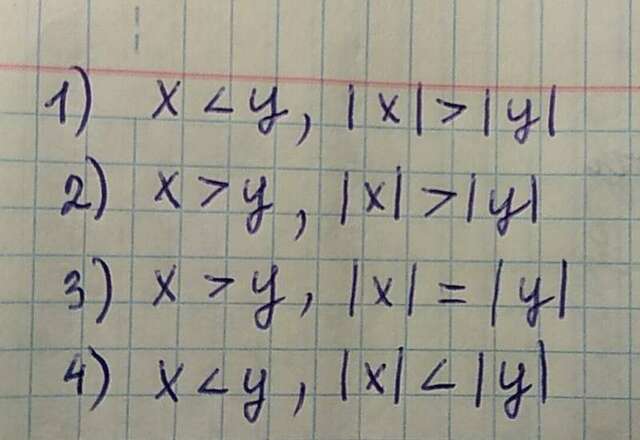 1) x < y, |x| > |y|
2) x > y, |x| > |y|
3) x > y, |x| = |y|
4) x < y, |x| < |y|